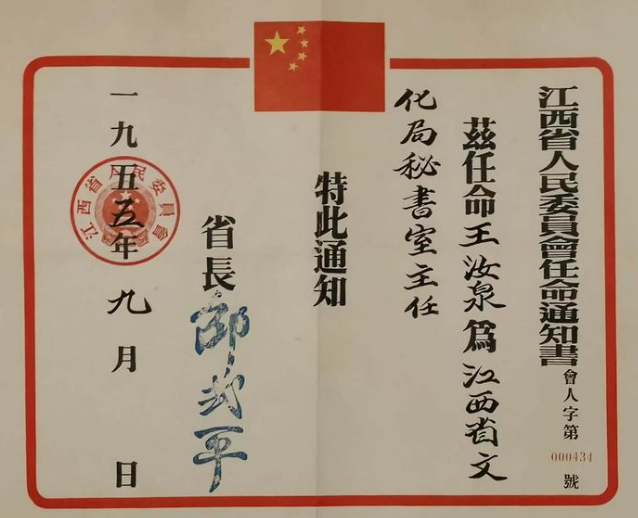 江西省人民委員會任命通知書
會人字第000434號
茲任命王汝泉爲江西省文
化局秘書室主任
特此通知
省長邵式平
一九五五年九月 日
江西省人民委員會